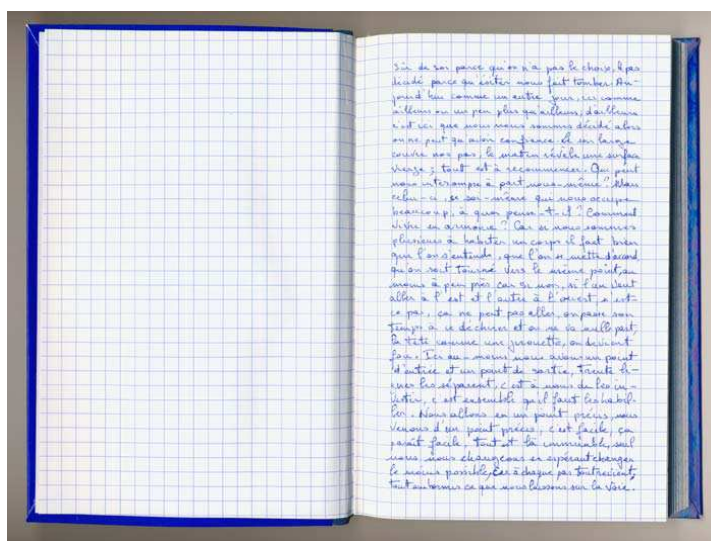 sûr de soi parce qu'on n'a pas le choix, & pas
décidé parce qu'éviter nous fait tomber. Au-
jourd'hui comme un autre jour, ici comme
ailleurs ou un peu plus qu'ailleurs, d'ailleurs
c'est ici que nous nous sommes décidé alors
on ne peut qu'avoir confiance et
couvre nos pas, le matin révèle une surface
vierge ; tout est à recommencer. Qui peut
nous interrompre à part nous-même ? Mais
celui-ci, ce soi-même qui nous occupe
beaucoup, à quoi pense-t-il ? Comment
vivre en armonie ? Car si nous sommes
plusieurs à habiter un corps il faut bien
que l'on s'entende, que l'on se mette d'accord
qu'on soit tourné vers le même point, au
moins à peu près car si non, si l'un veut
aller à l'est et l'autre à l'ouest, n'est-
ce pas, ça ne peut pas aller, on passe son
temps à se déchirer et on ne va nulle part,
la tête comme une girouette, on devient
fou. Ici au-moins nous avons un point
d'entrée et un point de sortie, trente li-
gnes les séparent, c'est à nous de les in-
vestir, c'est ensemble qu'il faut les habil-
ler. Nous allons en un point précis, nous
venons d'un point précis, c'est facile, ça
paraît facile, tout est là immuable, seul
nous nous changeons en espérant changer
le moins possible, car à chaque pas tout revient,
tout au ce que nous laissons sur la voie.